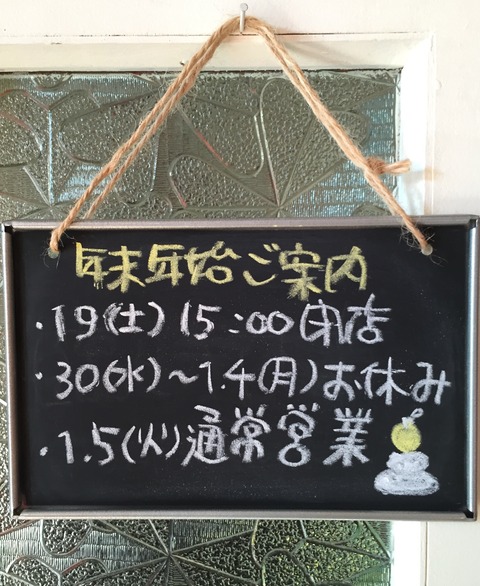 年末年始ご案内
・19(土)15:00閉店
・30(水)〜1.4(月)お休み
・1.5(火)通常営業